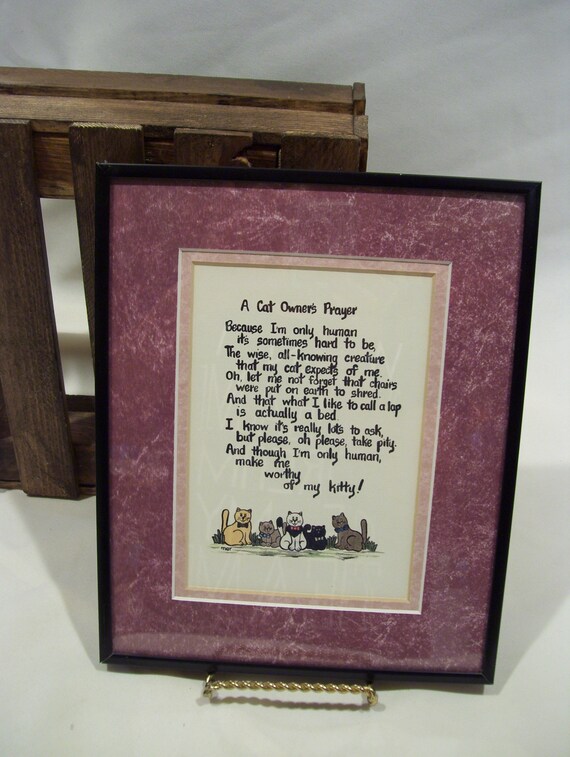 A Cat Owner's Prayer
Because I'm only human
it's sometimes hard to be,
The wise, all-knowing creature
that my cat expects of me.
Oh, let me not forget that chairs
were put on earth to shred.
And that what I like to call a lap
is actually a bed.
I know it's really lots to ask,
but please, oh please, take pity.
And though I'm only human,
make me
worthy
of my kitty!